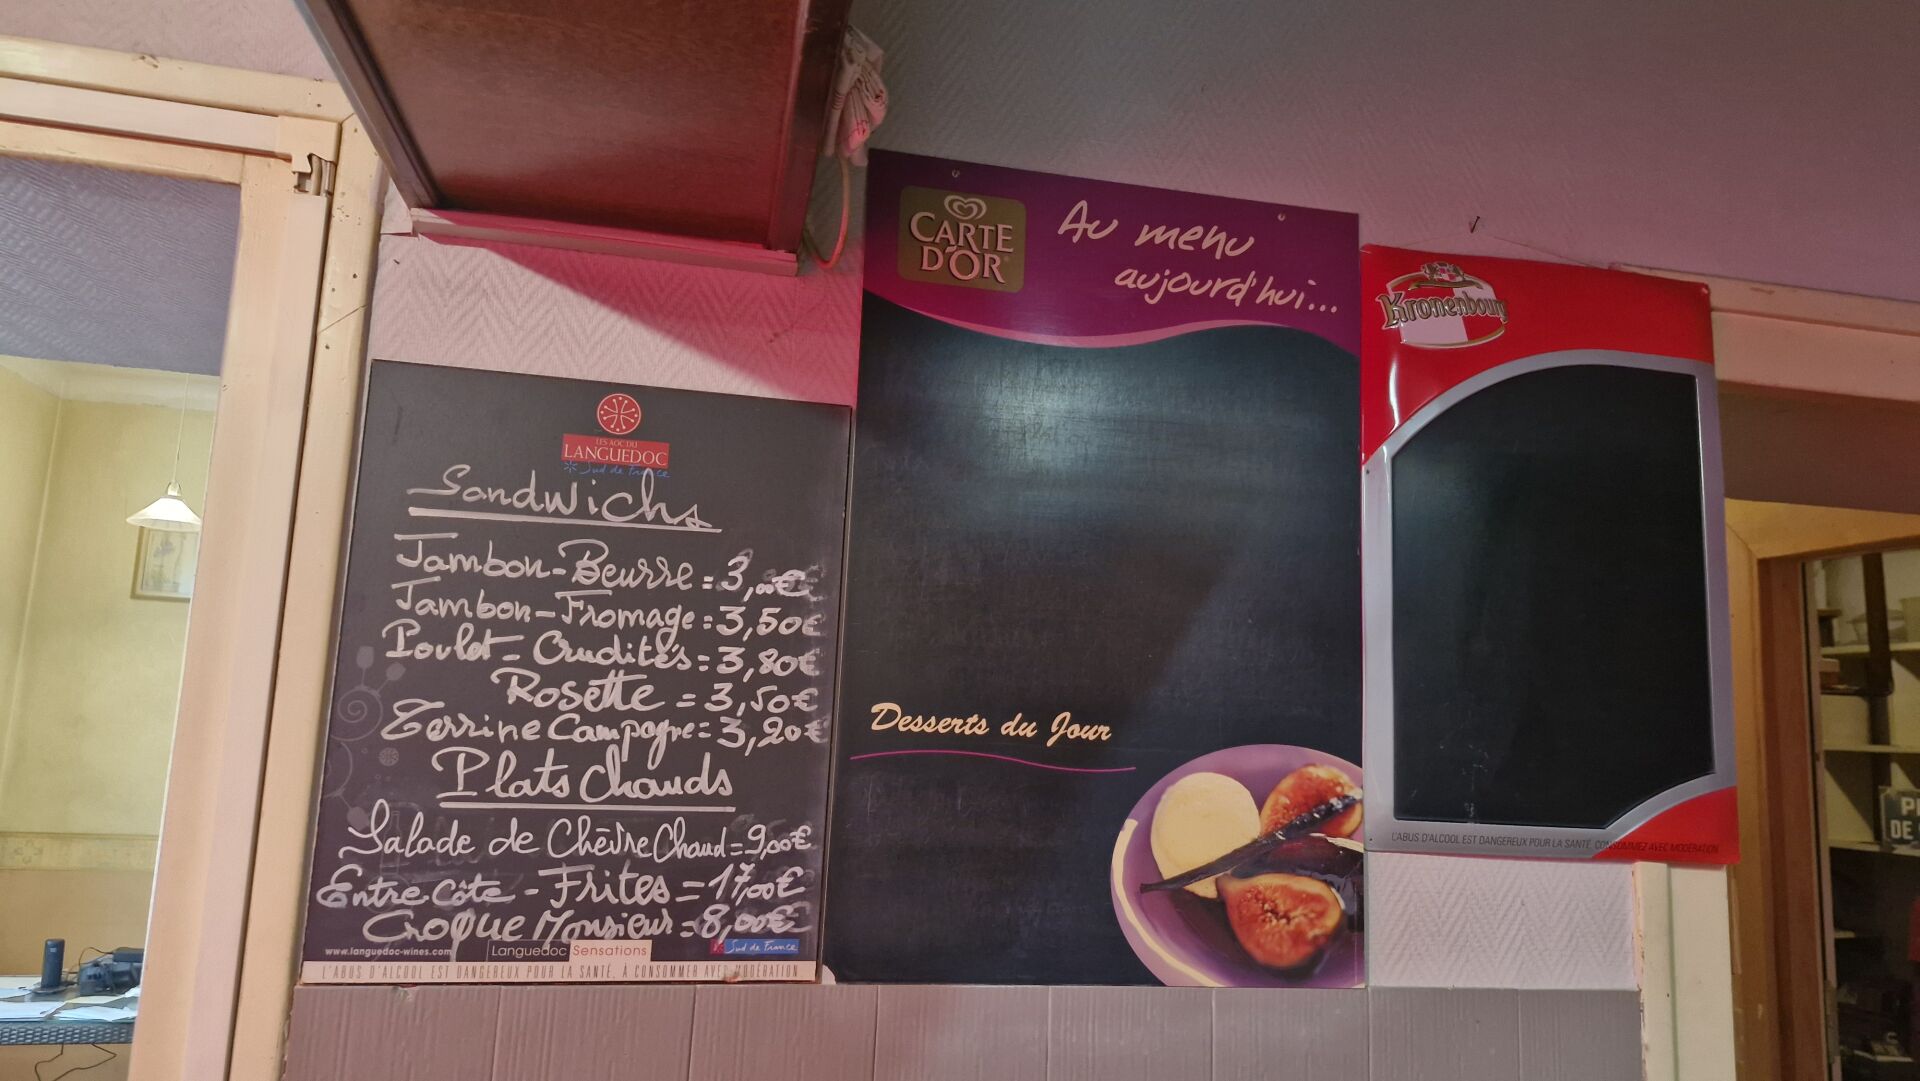 LES AOC DU
LANGUEDOC
Sud de France
Sandwichs
Jambon-Beurre = 3,00€
Jambon-Fromage = 3,50€
Poulet - Crudités = 3,80€
Rosette = 3,50€
Terrine Campagne = 3,20€
Plats Chauds
Salade de Chèvre Chaud = 9,00€
Entre Côte - Frites = 17,00€
Croque Monsieur = 8,00€
www.languedoc-wines.com
Languedoc Sensations
Sud de France
L'ABUS D'ALCOOL EST DANGEREUX POUR LA SANTÉ, À CONSOMMER AVEC MODÉRATION
CARTE
D'OR
Au menu
aujourd'hui...
Desserts du Jour
Kronenbourg
L'ABUS D'ALCOOL EST DANGEREUX POUR LA SANTÉ. CONSOMMEZ AVEC MODÉRATION
DE